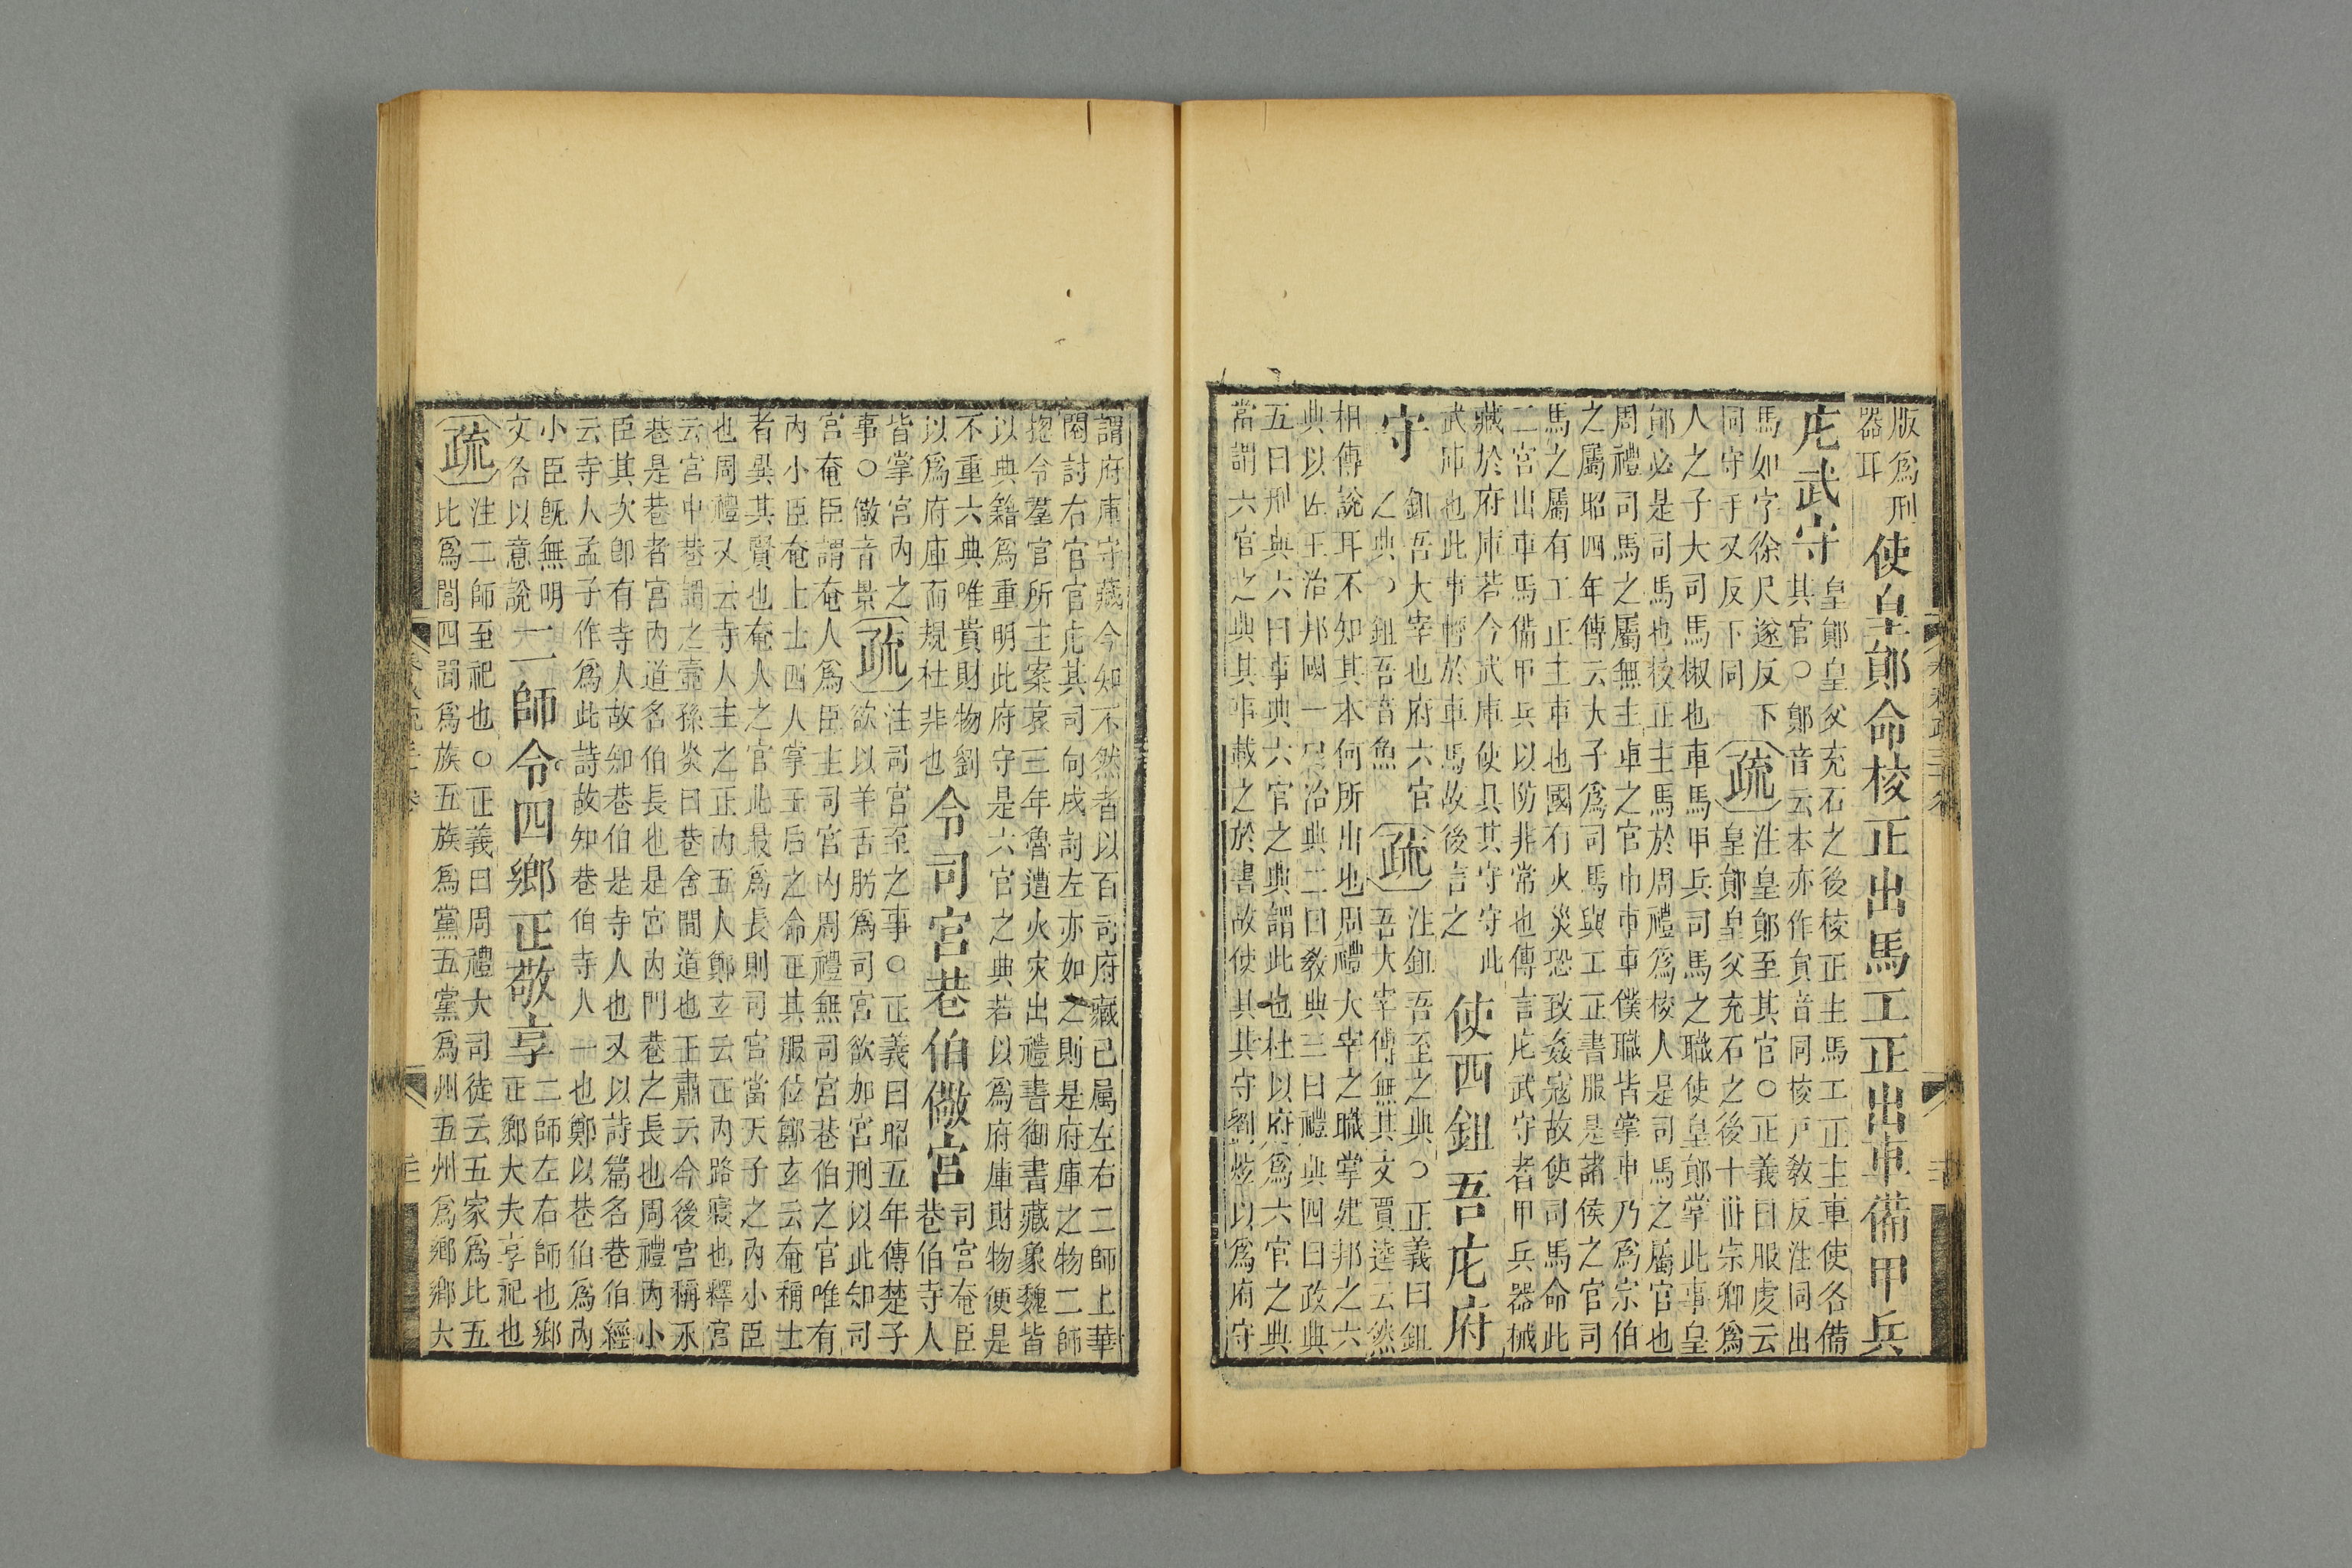 版爲刑
器耳
使皇鄖命校正出馬工正出車備甲兵
庀武守
皇鄖皇父充石之後校正主馬工正主車使各備
其官○鄖音云本亦作貟音同挍戸敎反注同出
馬如字徐尺遂反下
同守手又反下同
疏
注皇鄖至其官○正義曰服虔云
皇鄖皇父充石之後十世宗卿爲
人之子大司馬椒也車馬甲兵司馬之職使皇鄖掌此事皇
鄖必是司馬也校正主馬於周禮爲校人是司馬之屬官也
周禮司馬之屬無主車之官巾車車僕職皆掌車乃爲宗伯
之屬昭四年傳云夫子爲司馬與工正書服是諸侯之官司
馬之屬有工正主車也國有火災恐致姦寇故使司馬命此
二官出車馬備甲兵以防非常也傳言庀武守者甲兵器械
藏於府庫若今武庫使具其守守此
武庫也此事暫於車馬故後言之
使西鉏吾庀府
守
鉏吾大宰也府六官
之典○鉏吾音魚
疏
注鉏吾至之典○正義曰鉏
吾大宰傳無其文賈逵云然
相傳說耳不知其本何所出也周禮大宰之職掌建邦之六
典以佐王治邦國一曰治典二曰敎典三曰禮典四曰政典
五曰刑典六曰事典六官之典謂此也杜以府爲六官之典
當謂六官之典其事載之於書故使具其守劉炫以爲府守
謂府庫守藏今如不然者以百司府藏已屬左右二師上華
閱討右官官庀其司向戌討左亦如之則是府庫之物二師
揔令羣官所主案哀三年魯遭火灾出禮書御書書藏象魏皆
以典籍爲重明此府守是六官之典若以爲府庫財物便是
不重六典唯貴財物劉
以爲府庫而規杜非也
令司宮巷伯儆宮
司宮奄臣
巷伯寺人
皆掌宮內之
事○儆音景
疏
注司宮至之事○正義曰昭五年傳楚子
欲以羊舌肸爲司宮欲加宮刑以此知司
宮奄臣謂奄人爲臣主司宮內周禮無司宮巷伯之官唯有
內小臣奄上士四人掌王后之命正其服位鄭玄云奄稱士
者異其賢也奄人之官此最爲長則司宮當天子之內小臣
也周禮又云寺人主之正內五人鄭玄云正內路寢也釋宮
云宮中巷謂之壼孫炎曰巷舍間道也王肅云今後宮稱永
巷是巷者宮內道名伯長也是宮內門巷之長也周禮內小
臣其次卽有寺人故知巷伯是寺人也又以詩篇名巷伯經
云寺人孟子作爲此詩故知巷伯寺人一也鄭以巷伯爲內
小臣旣無明
文各以意說
二師令四鄉正敬享
二師左右師也鄉
正鄉大夫享祀也
疏
注二師至祀也○正義曰周禮大司徒云五家爲比五
比爲閭四閭爲族五族爲黨五黨爲州五州爲鄉鄉大